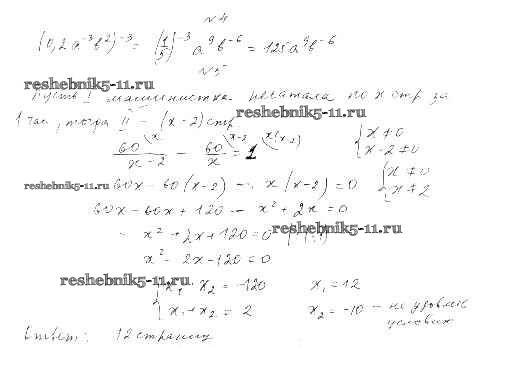 №4
(0,2a⁻³b²)⁻³ = (1/5)⁻³ a⁹b⁻⁶ = 125a⁹b⁻⁶
№5
reshebnik5-11.ru
Пусть I машинистка печатала по x стр за
reshebnik5-11.ru
1 час, тогда II – (x-2) стр
60/(x-2) - 60/x = 1
{x≠0
x-2≠0
reshebnik5-11.ru 60x - 60(x-2) - x(x-2) = 0
{x≠0
x≠2
60x - 60x + 120 - x² + 2x = 0
- x² + 2x + 120 = 0
reshebnik5-11.ru
x² - 2x - 120 = 0
reshebnik5-11.ru
{x₁ · x₂ = -120 x₁ = 12
x₁ + x₂ = 2 x₂ = -10 – не удовл.
условию
Ответ: 12 страниц